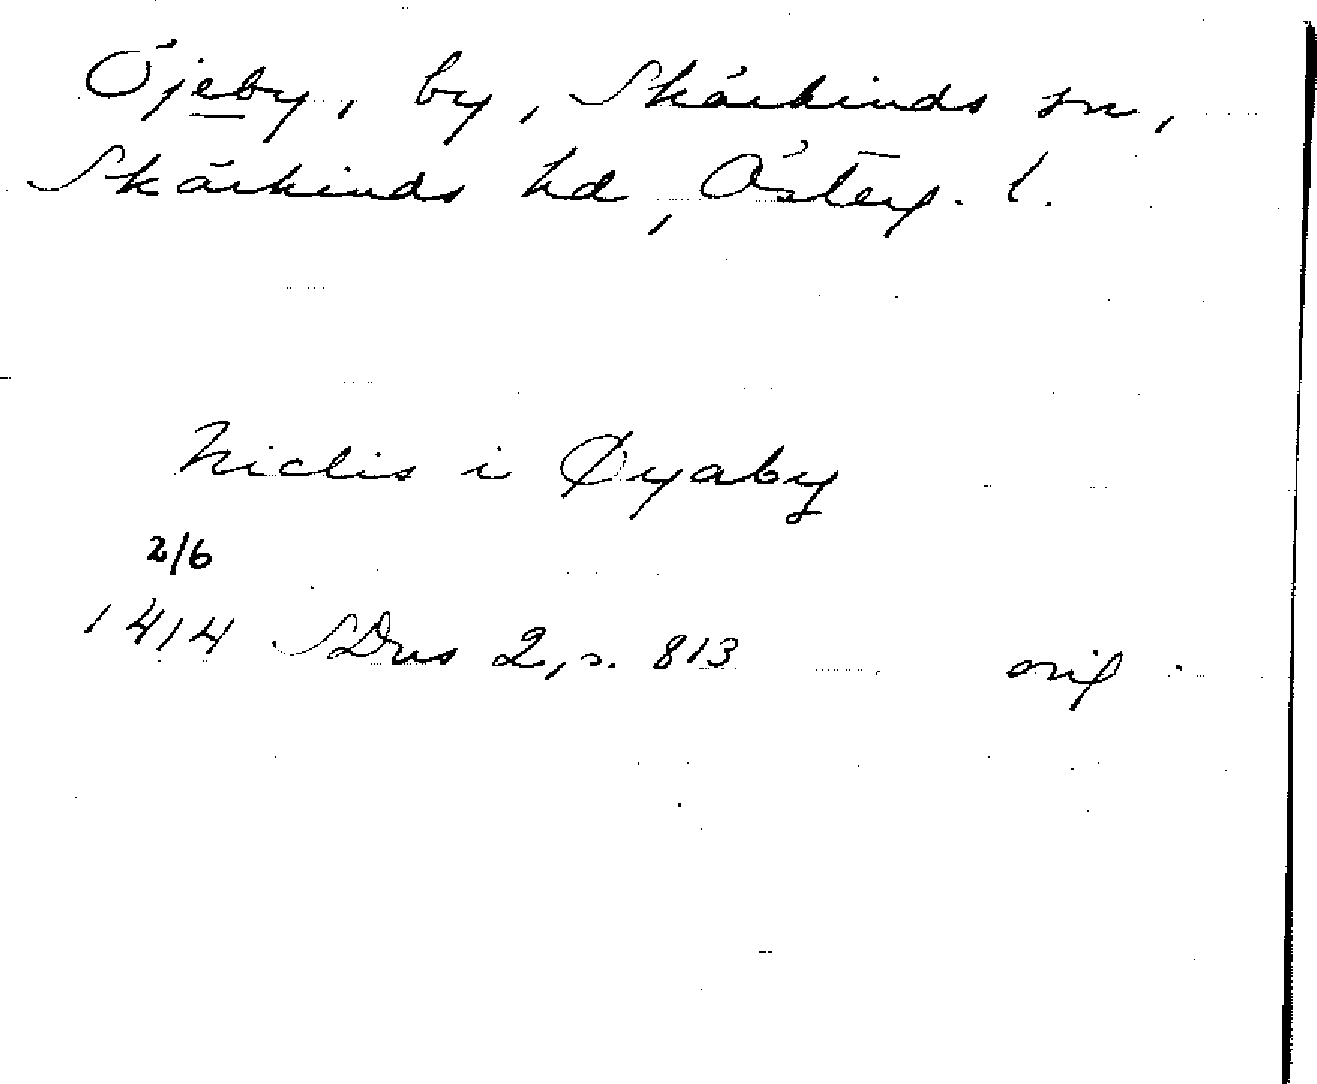 Öjeby, by, Skärkinds sn,
Skärkinds hd, Österg. l.
Niclis i Øyaby
2/6
1414 SDns 2, s. 813 orig